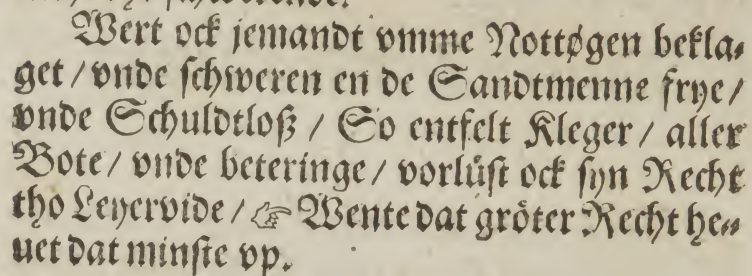 Wert ock jemandt vmme Nottøgen bekla⸗
get / vnde schweren en de Sandtmenne frye /
vnde Schuldtloß / So entfelt Kleger / aller
Bote / vnde beteringe / vorlüst ock syn Recht
tho Leyervide / ☞ Wente dat gröter Recht he⸗
uet dat minste vp.